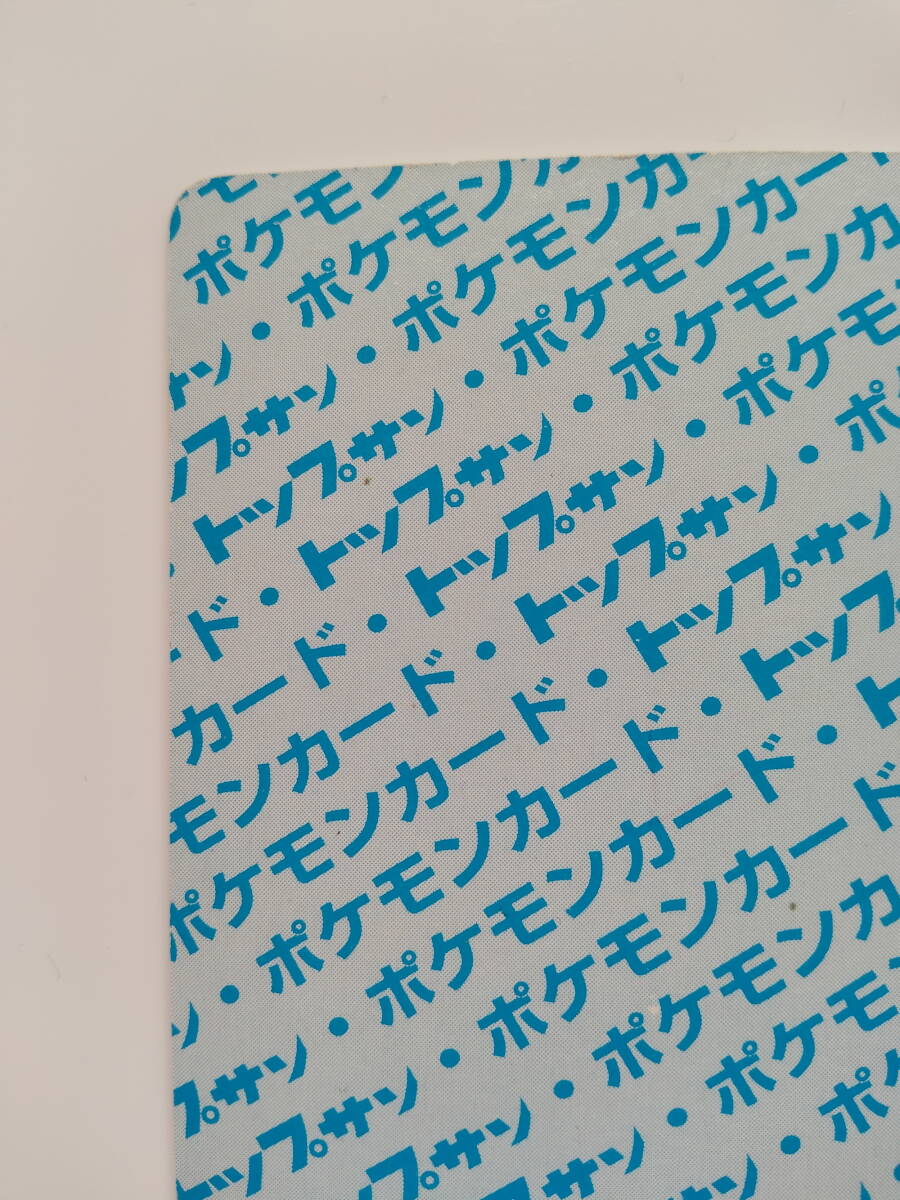 モン
ポケモン
サン・ポケモンカ
ップサン・ポケモンカ
・トップサン・ポケモンカード
ード・トップサン・ポケモンカ
カード・トップサン・ポケモ
モンカード・トップサン・ポケ
ポケモンカード・トップサン
ン・ポケモンカード・トップ
プサン・ポケモンカード・ト
トップサン・ポケモンカード
プサン・ポケモンカ
サン・ポケモ
・ポケ